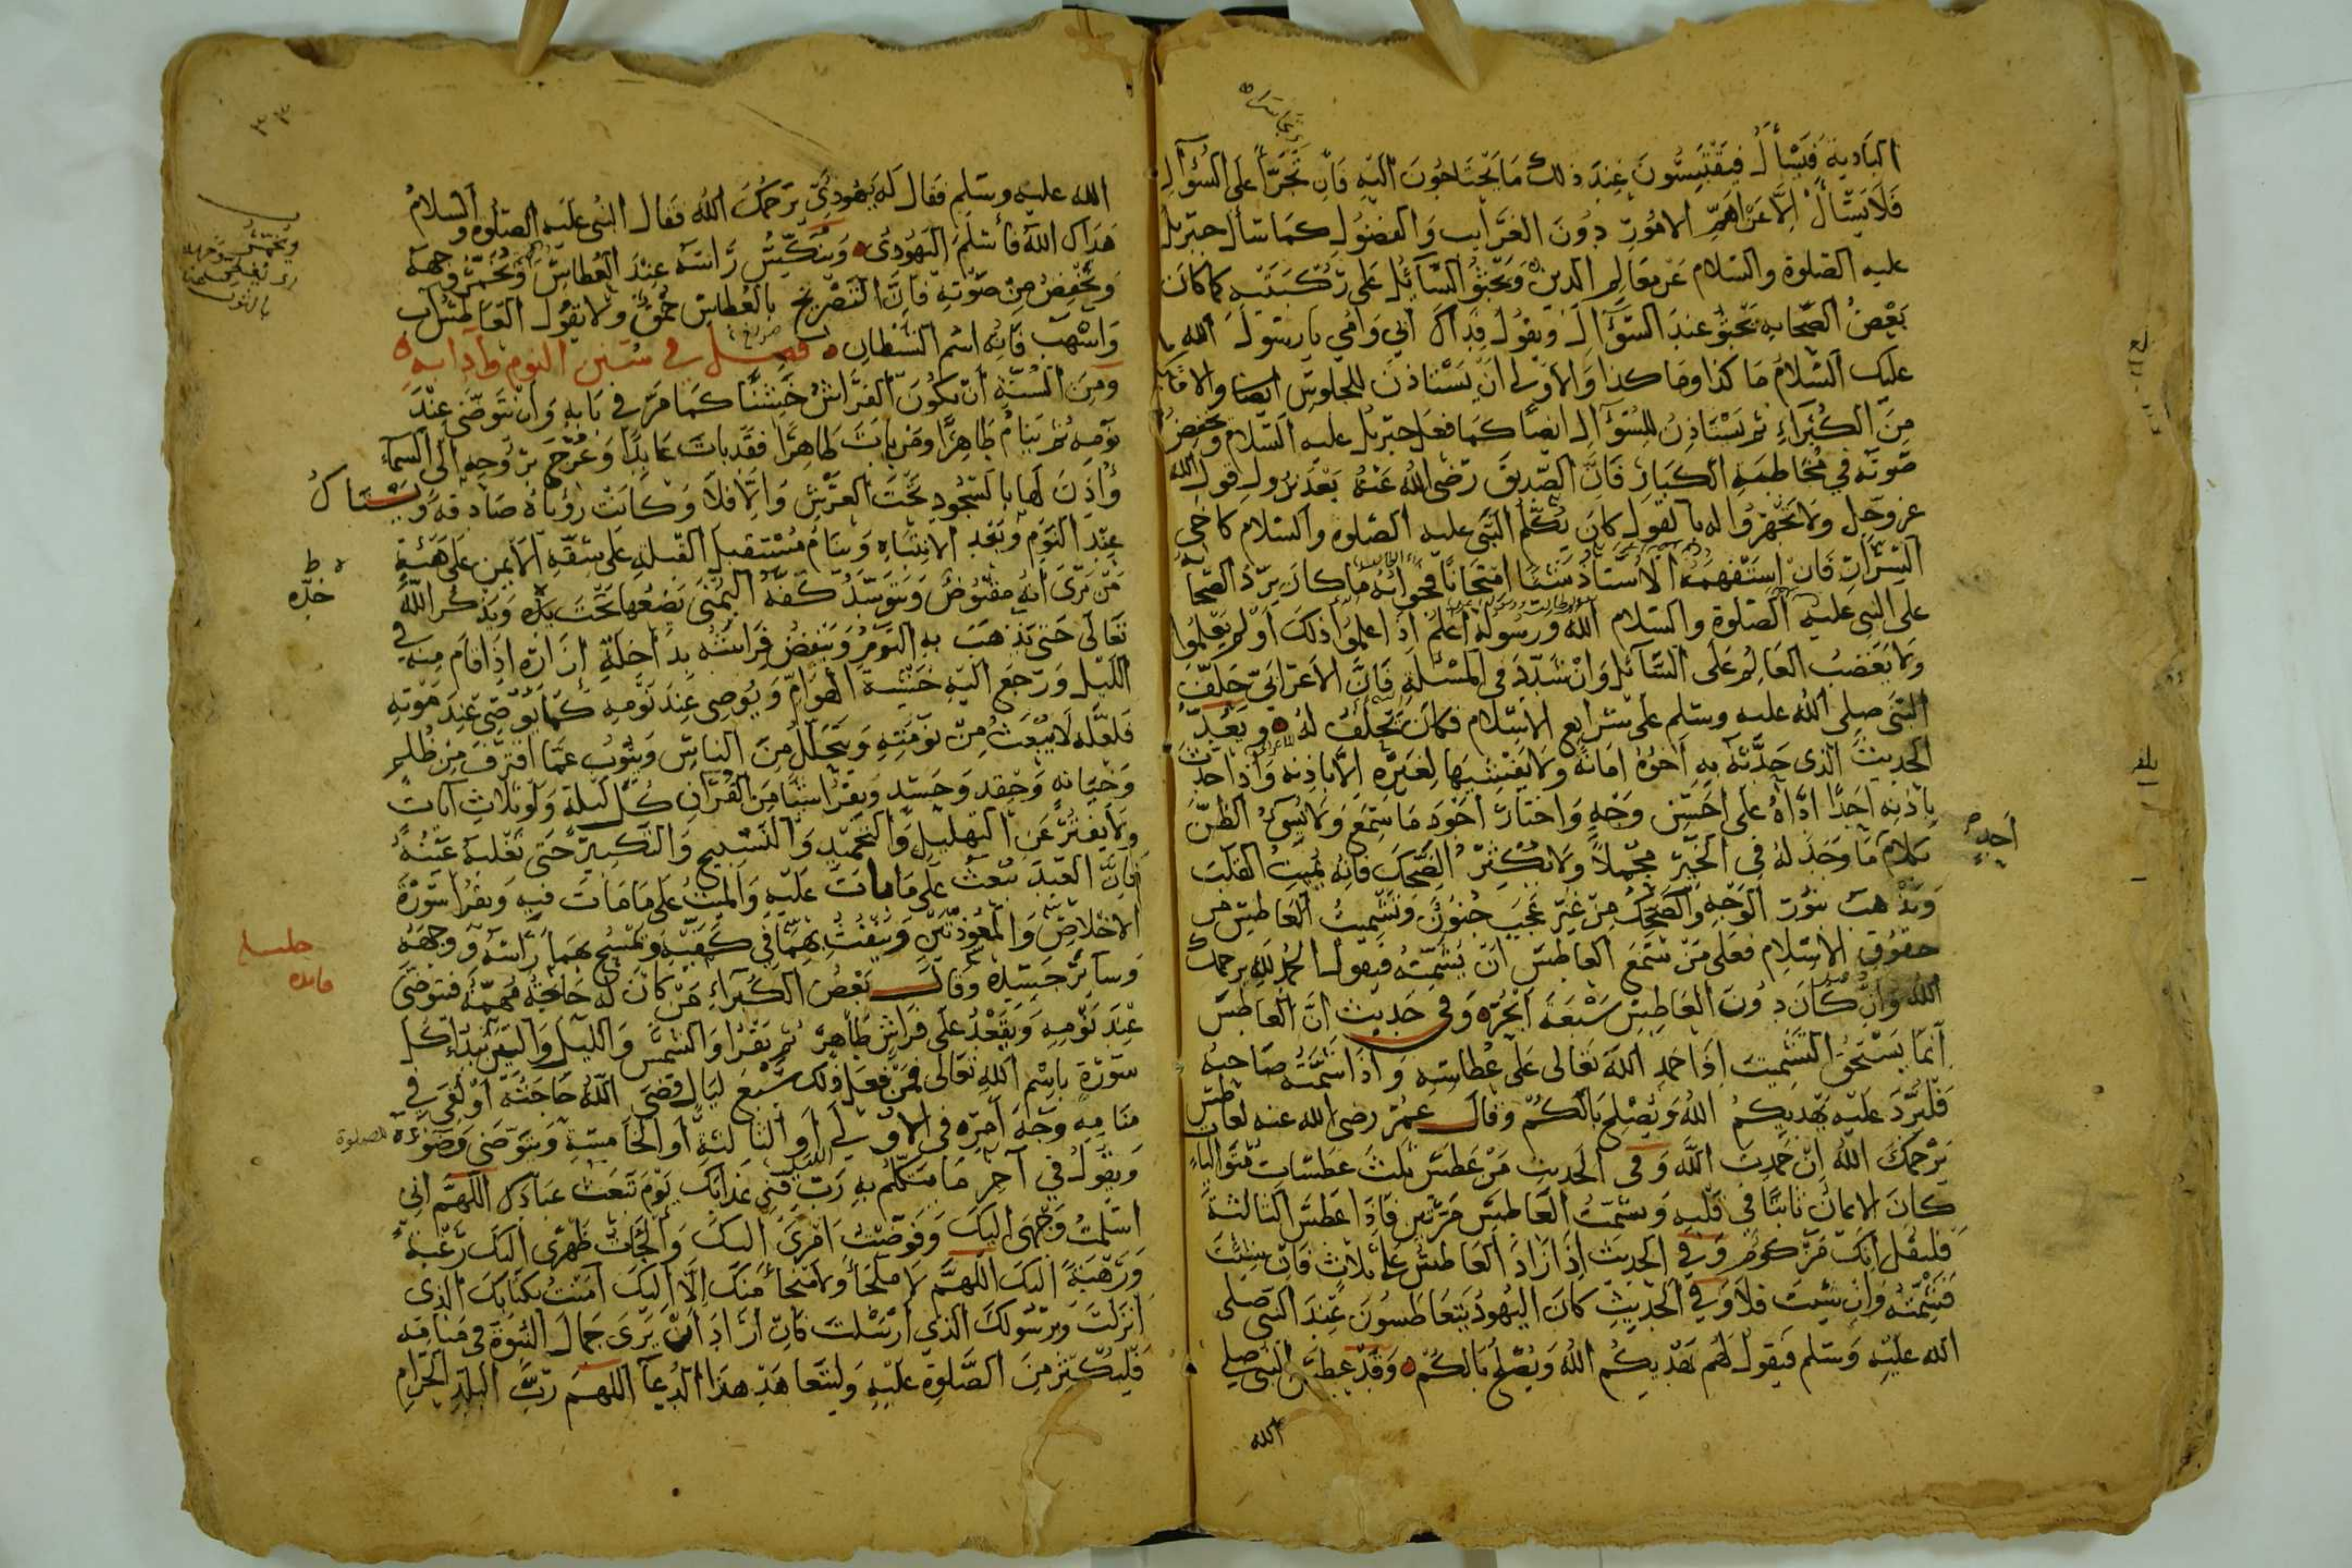 البادية فيسأل فيقتبسون عند ذلك ما يحتاجون اليه فان تجرأ على السؤال
فلا يسأل الا عن اهم الامور دون الغرايب والفضول كما سأل جبريل
عليه الصلوة والسلام عن معالم الدين ويجثو السائل على ركبتيه كما كان
بعض الصحابه يجثو عند السؤال ويقول فداك ابي وامي يا رسول الله
عليك السلام ما كذا وما كذا والاولى ان يستاذن للجلوس ايضا والا
من الكبراء ثم يستاذن للسؤال ايضا كما فعل جبريل عليه السلام ويخفض
صوته في مخاطبة الكبار فان الصديق رضى الله عنه بعد نزول قول الله
عز وجل ولا تجهروا له بالقول كان يكلم النبى عليه الصلوة والسلام كاخي
السرار فان استفهمه الاستاذ شيئا امتحانا فجوابه ما كان يرد الصحابة
على النبى عليه الصلوة والسلام الله ورسوله اعلم اذا علموا ذلك او لم يعلموا
ولا يغضب العالم على السائل وان شدد في المسئلة فان الاعرابي حلف
النبى صلى الله عليه وسلم على شرايع الاسلام فكان يحلف له ويعد
الحديث الذى حدثه به اخوه امانة ولا يفشيها لغيره الا باذنه واذا حدث
باذنه احدا اداه على احسن وجه واختار اجود ما سمع ولا يسوء الظن
بكلام ما وجد له في الخير محملا ولا يكثر الضحك فانه يميت القلب
ويذهب بنور الوجه والضحك من غير عجب جنون وتشميت العاطس من
حقوق الاسلام فعلى من سمع العاطس ان يشمته فيقول الحمد لله يرحمك
الله وان كان دون العاطس سبعة ابحره وفي حديث ان العاطس
انما يستحق التشميت اذا حمد الله تعالى على عطاسه واذا شمته صاحبه
فليرد عليه يهديكم الله ويصلح بالكم وقال عمر رضى الله عنه لعاطس
يرحمك الله ان حمدت الله وفي الحديث من عطس ثلث عطسات متواليات
كان الايمان ثابتا في قلبه ويشمت العاطس مرتين فاذا عطس الثالثة
فليقل انك مزكوم وفي الحديث اذا زاد العاطس على ثلاث فان شئت
فشمته وان شئت فلا وفي الحديث كان اليهود يتعاطسون عند النبى صلى
الله عليه وسلم فيقول لهم يهديكم الله ويصلح بالكم وقد عطس النبى صلى
الله
احد
بلغ
٣٣
الله عليه وسلم فقال له يهودي يرحمك الله فقال النبى عليه الصلوة والسلام
هداك الله فأسلم اليهودى وينكس رأسه عند العطاس ويخمر وجهه
ويخفض من صوته فان التصريح بالعطاس حمق ولا يقول العاطس اب
واشهب فانه اسم الشيطان فصل في سنن النوم وآدابه
ومن السنة ان يكون الفراش خشنا كما مر في بابه وان يتوضى عند
نومه ثم ينام طاهرا ومن بات طاهرا فقد بات عابدا وعرج بروحه الى السماء
واذن لها بالسجود تحت العرش والا فلا وكانت رؤياه صادقه ويستاك
عند النوم وبعد الانتباه وينام مستقبل القبلة على شقه الايمن على هيئة
من يرى انه مقبوض ويتوسد كفه اليمنى يضعها تحت خده ويذكر الله
تعالى حتى يذهب به النوم وينفض فراشه بداخلة ازاره اذا قام منه في
الليل ورجع اليه خشية الهوام ويوصى عند نومه كما يوصى عند موته
فلعله لا يبعث من نومته ويتحلل من الناس ويتوب عما اقترف من ظلم
وخيانه وحقد وحسد ويقرا شيئا من القران كل ليلة ولو ثلاث ايات
ولا يفتر عن التهليل والتحميد والتسبيح والتكبير حتى تغلبه عينه
فان العبد يبعث على ما مات عليه والميت على ما مات فيه ويقرا سورة
الاخلاص والمعوذتين وينفث بهما في كفيه ويمسح بهما راسه ووجهه
وسائر جسده وقال بعض الكبراء من كان له حاجة مهمة فتوضى
عند نومه ويقعد على فراش طاهر ثم يقرا والشمس والليل والتين يبدا كل
سورة باسم الله تعالى فمن فعل ذلك سبع ليال قضى الله حاجته او لقى في
منامه وجه امره في الاولى او الثالثة او الخامسة ويتوضى وضوءه للصلوة
ويقول في آخر ما يتكلم به رب قنى عذابك يوم تبعث عبادك اللهم انى
اسلمت وجهى اليك وفوضت امرى اليك والجات ظهرى اليك رغبة
ورهبة اليك اللهم لا ملجأ ولا منجا منك الا اليك آمنت بكتابك الذى
انزلت وبرسولك الذى ارسلت فان اراد ان يرى جمال النبوة في منامه
فليكثر من الصلوة عليه وليتعاهد هذا الدعا اللهم رب البلد الحرام
خده
فائده